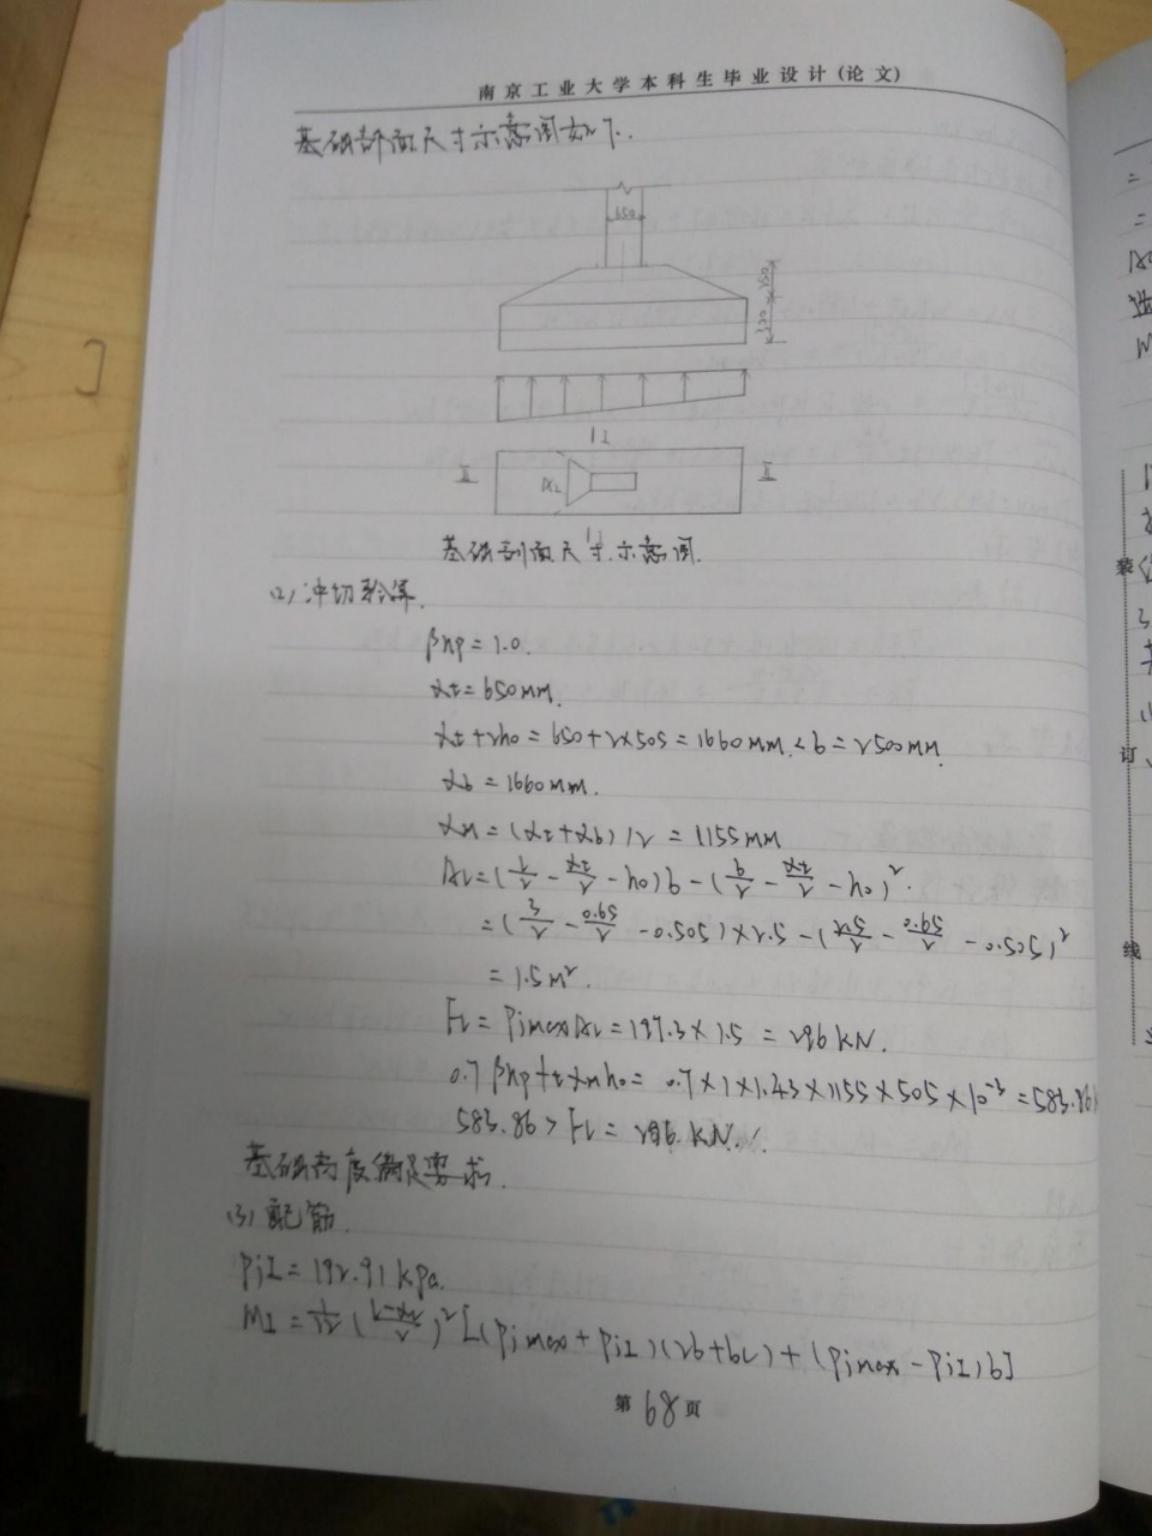 南京工业大学本科生毕业设计(论文)
基础剖面尺寸示意图如下.
650
350
I
II II
Al
I
基础剖面尺寸示意图.
(2) 冲切验算.
βhp=1.0.
at=650mm.
at+2h0=650+2×505=1660mm<b=2500mm.
ab=1660mm.
am=(at+ab)/2=1155mm
Al=(l/2-at/2-h0)b-(b/2-at/2-h0)².
=(3/2-0.65/2-0.505)×2.5-(2.5/2-0.65/2-0.505)²
=1.5m².
Fl=PjmaxAl=197.3×1.5=296kN.
0.7βhpftamh0=0.7×1×1.43×1155×505×10⁻³=583.86k
583.86>Fl=296.kN.
基础高度满足要求.
(3) 配筋.
PjI=192.91kpa.
MI=1/12(l-ac/2)²[(Pjmax+PjI)(2b+bc)+(Pjmax-PjI)b]
第68页
装
订
线